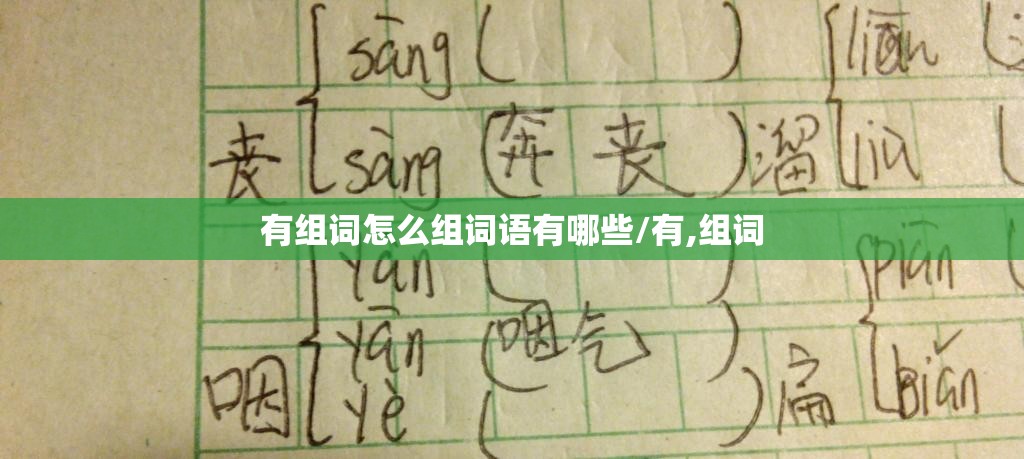 sāng ( ) liān (
丧 sàng (奔 丧) 溜 liù (
有组词怎么组词语有哪些/有,组词
yàn ( ) piān (
yān (咽气)
咽 yè ( ) 扁 biǎn